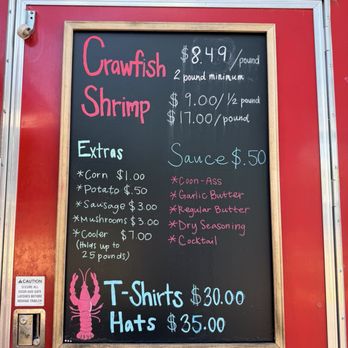 Crawfish $8.49/pound
2 pound minimum
Shrimp $9.00/½ pound
$17.00/pound
Extras
*Corn $1.00
*Potato $.50
*Sausage $3.00
*Mushrooms $3.00
*Cooler $7.00
(Holds up to
25 pounds)
Sauce $.50
*Coon-Ass
*Garlic Butter
*Regular Butter
*Dry Seasoning
*Cocktail
T-Shirts $30.00
Hats $35.00
CAUTION